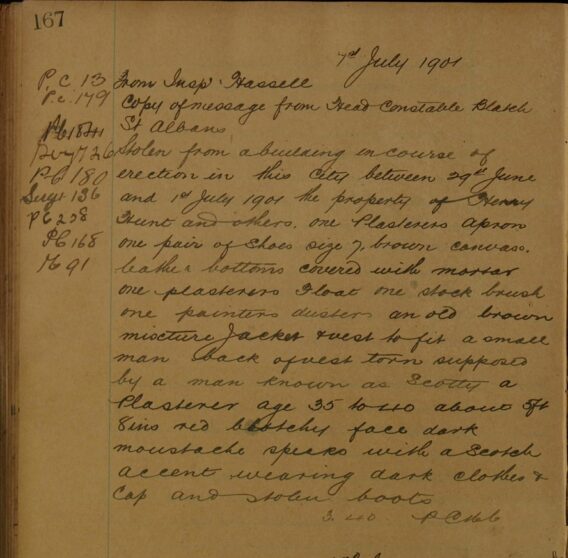 167
7th July 1901
P.C 13
P.C. 179
PC 180
Sergt 136
PC 228
PC 168
91
From Insp. Hassell
Copy of message from Head Constable Blatch
St Albans
Stolen from a building in course of
erection in this City between 29th June
and 1st July 1901 the property of Henry
Hunt and others. one Plasterers apron
one pair of Shoes size 7, brown canvas.
leather bottoms covered with mortar
one plasterers Float one stock brush
one painters dusters an old brown
mixture Jacket & vest to fit a small
man back of vest torn supposed
by a man known as Scotty a
Plasterer age 35 to 40 about 5ft
8ins red blotchy face dark
moustache speaks with a Scotch
accent wearing dark clothes &
Cap and stolen boots
3. 40